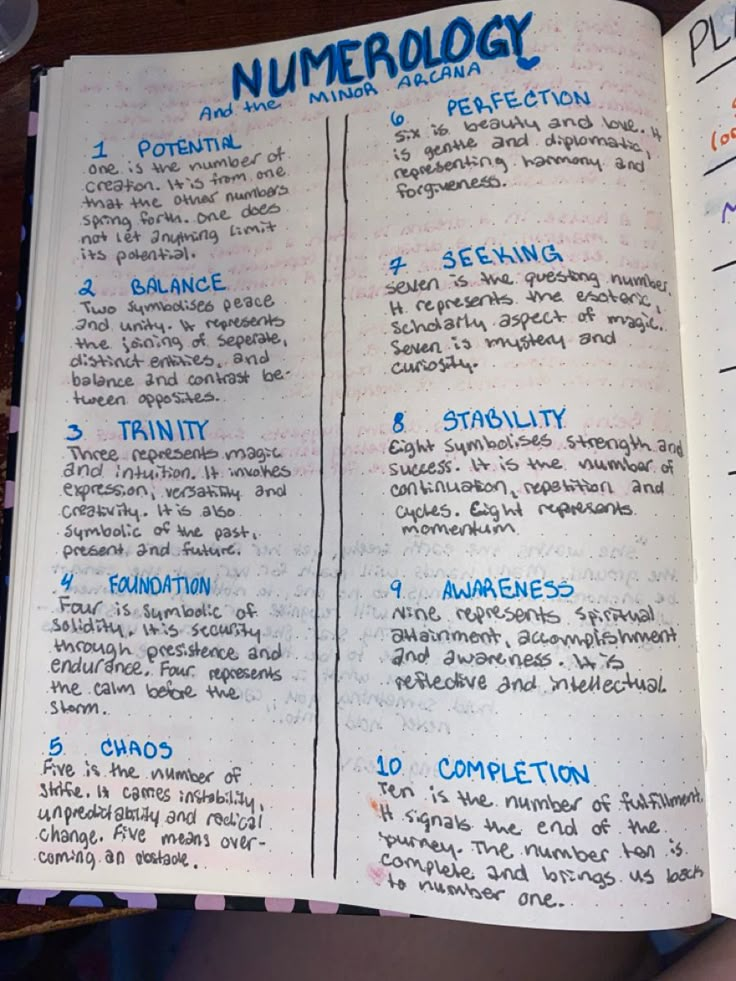 NUMEROLOGY
And the MINOR ARCANA
1 POTENTIAL
one is the number of
creation. It is from one
that the other numbers
spring forth. One does
not let anything limit
its potential.
2 BALANCE
Two symbolises peace
and unity. It represents
the joining of seperate,
distinct entities, and
balance and contrast be-
tween opposites.
3 TRINITY
Three represents magic
and intuition. It invokes
expression, versatility and
creativity. It is also
symbolic of the past,
present, and future.
4 FOUNDATION
Four is symbolic of
solidity. It is security
through presistence and
endurance. Four represents
the calm before the
storm.
5 CHAOS
Five is the number of
strife. It carries instability,
unpredictability and radical
change. Five means over-
coming an obstacle.
6 PERFECTION
Six is beauty and love. It
is gentle and diplomatic,
representing harmony and
forgiveness.
7 SEEKING
Seven is the questing number.
It represents the esoteric,
scholarly aspect of magic.
Seven is mystery and
curiosity.
8 STABILITY
Eight symbolises strength and
success. It is the number of
continuation, repetition and
cycles. Eight represents
momentum.
9 AWARENESS
Nine represents spiritual
attainment, accomplishment
and awareness. It is
reflective and intellectual.
10 COMPLETION
Ten is the number of fulfillment.
It signals the end of the
journey. The number ten is
complete and brings us back
to number one.